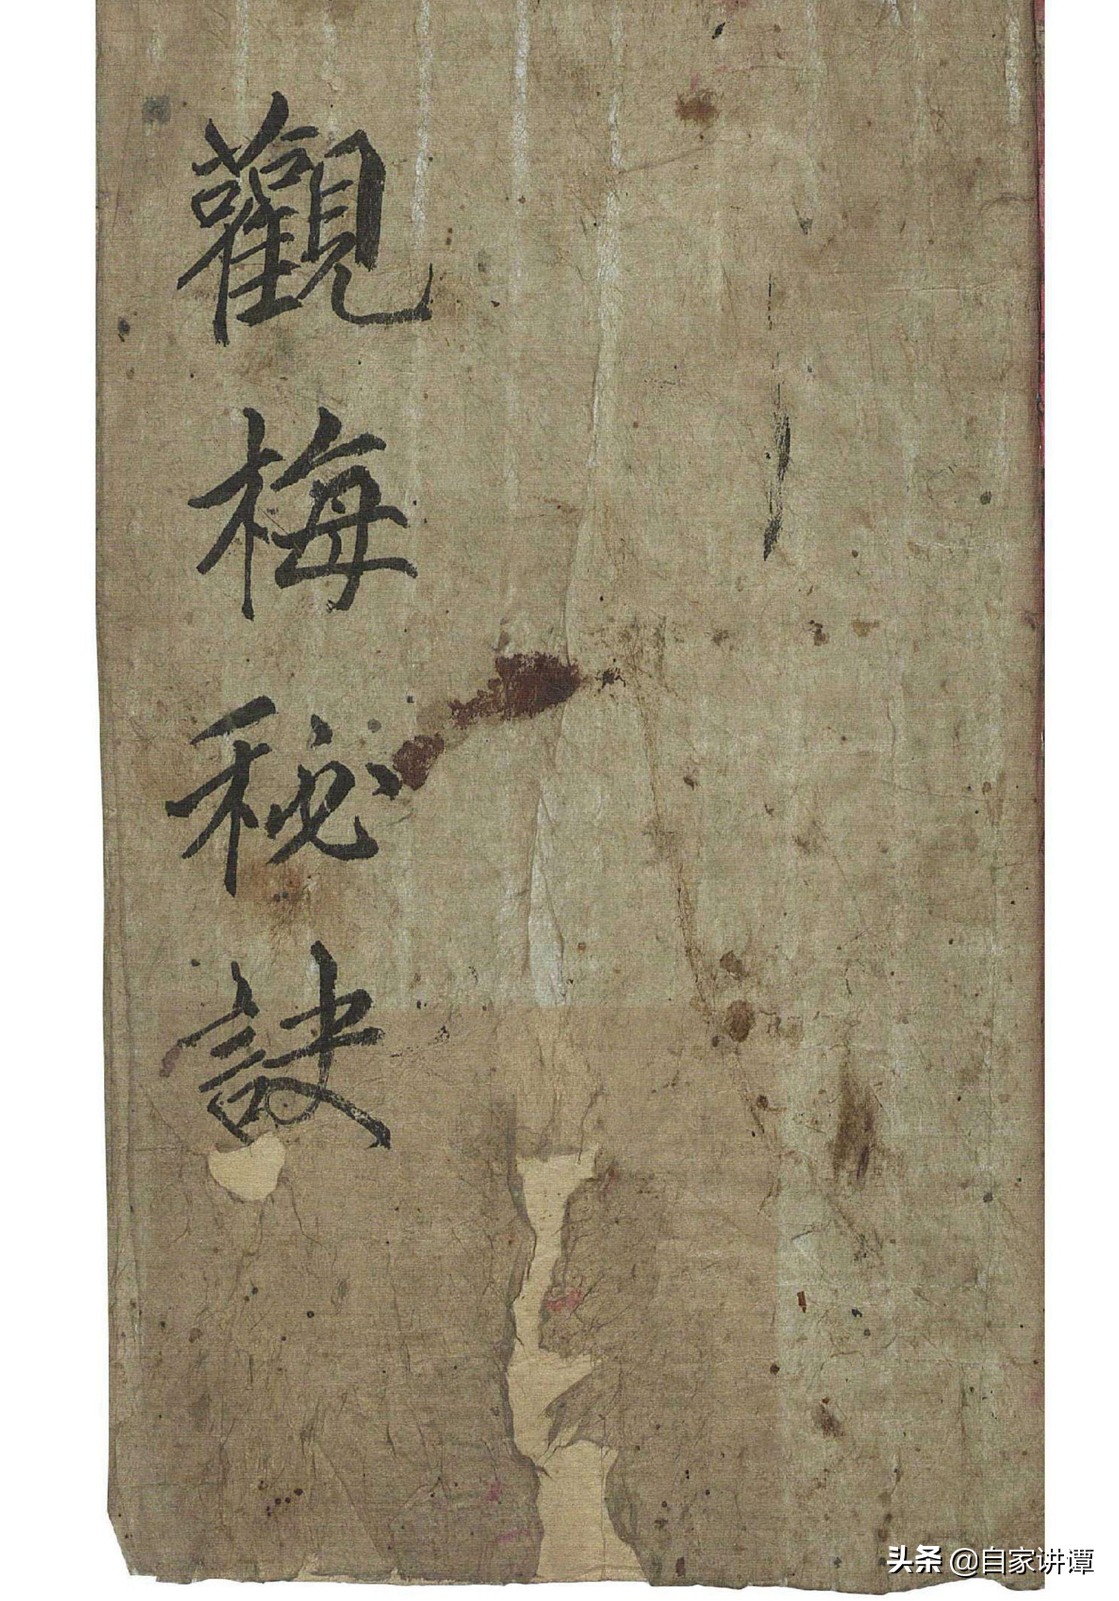 觀梅秘訣
头条 @自家讲谭